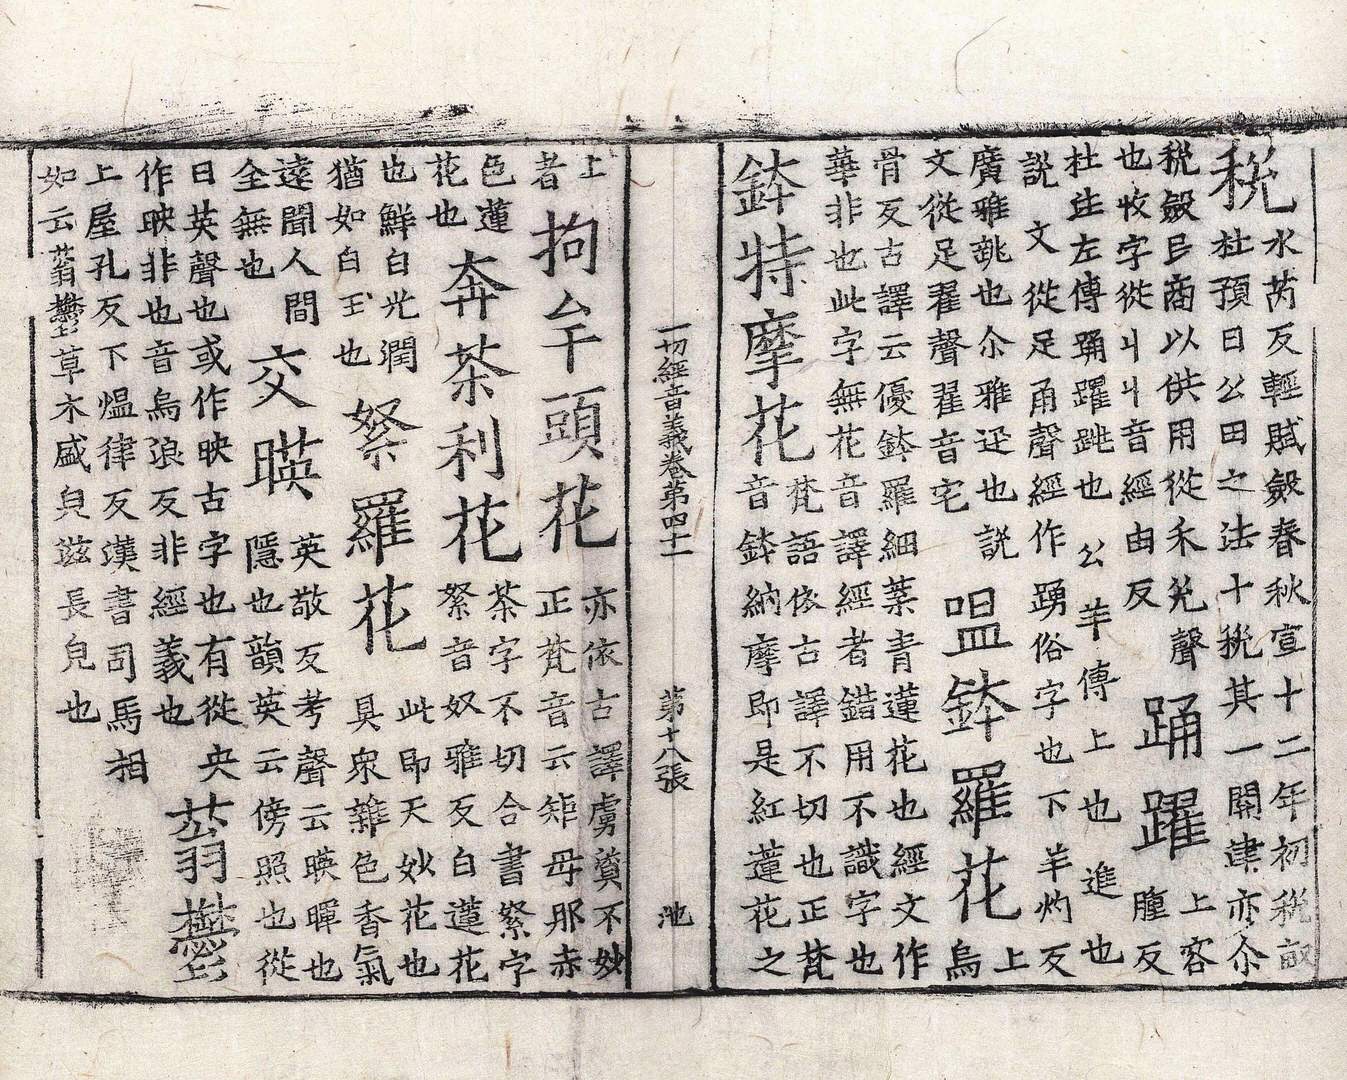 稅水芮反輕賦斂春秋宣十二年初稅畝
杜預曰公田之法十稅其一關津亦尒
稅斂百商以供用從禾兌聲踊躍上容
也收字從丩丩音經由反腫反
杜注左傳踊躍跳也公羊傳上也進也
說文從足甬聲經作踴俗字也下羊灼反
廣雅跳也尒雅迅也說
文從足翟聲翟音宅嗢鉢羅花上烏
骨反古譯云優鉢羅細葉青蓮花也經文作
華非也此字無花音譯經者錯用不識字也
鉢特摩花梵語依古譯不切也正梵
音鉢納摩即是紅蓮花之
一切經音義卷第四十一 第十八張 池
上
者拘牟頭花亦依古譯虜質不妙
正梵音云矩母那赤
色蓮
花也奔茶利花茶字不切合書拏字
拏音奴雅反白蓮花
也鮮白光潤
猶如白玉也拏羅花此即天妙花也
具眾雜色香氣
遠聞人間
全無也交暎英敬反考聲云暎暉也
隱也韻英云傍照也從
日英聲也或作映古字也有從央
作映非也音烏浪反非經義也蓊鬱
上屋孔反下熅律反漢書司馬相
如云蓊鬱草木盛皃滋長皃也